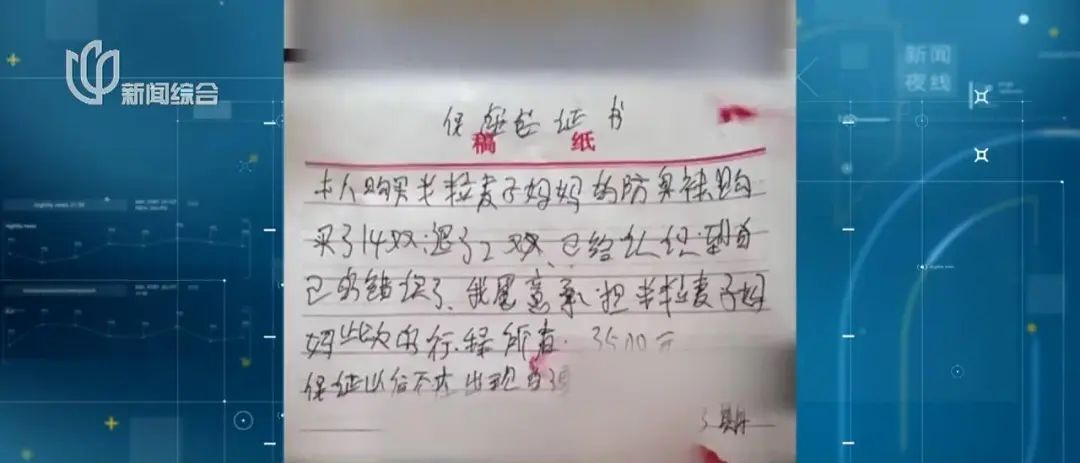 新闻综合
新闻
夜线
保证书
稿 纸
本人购买半粒麦子妈妈的防臭袜购
买了14双退了2双、已给认识到自
己的错误了、我愿意承担半粒麦子妈
妈此次的行程所有. 3500元
保证以后不在出现